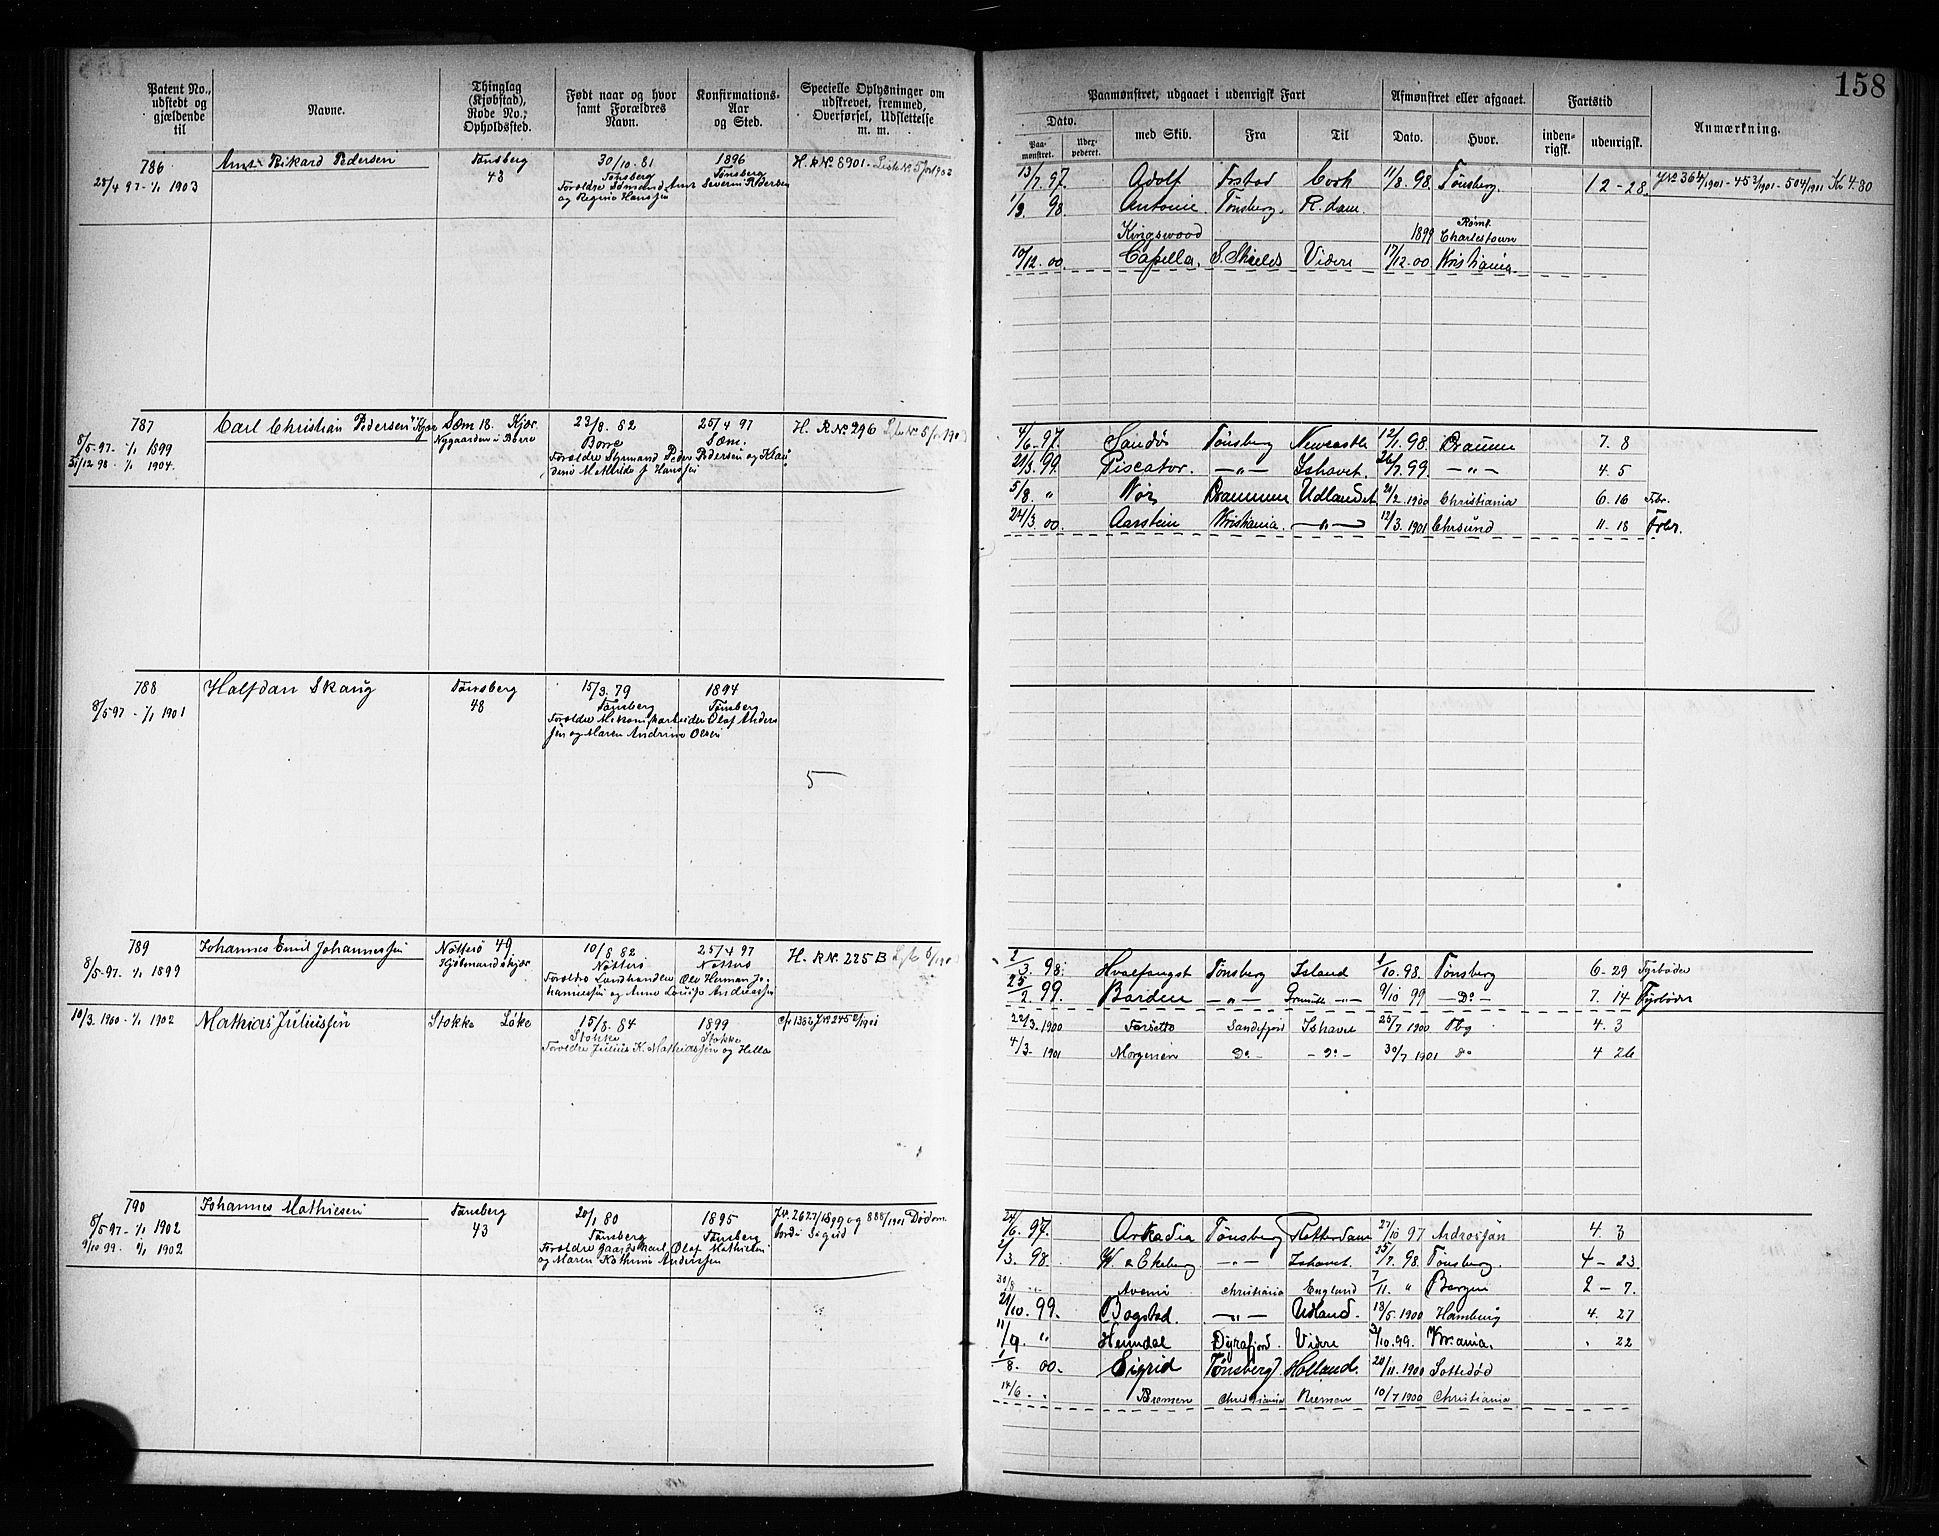 158
Patent No., udstedt og gjældende til
Navne.
Thinglag (Kjøbstad), Rode No.; Opholdssted.
Født naar og hvor samt Forældres Navn.
Konfirmations-Aar og Sted.
Specielle Oplysninger om udskrevet, fremmed, Overførsel, Udslettelse m. m.
Paamønstret, udgaaet i udenrigsk Fart
Afmønstret eller afgaaet.
Fartstid
Anmærkning.
Dato.
Paa-mønstret.
Udex-pederet.
med Skib.
Fra
Til
Dato.
Hvor.
inden-rigsk.
udenrigsk.
786
28/4 97 - 1/1 1903
Rikard Pedersen
Tønsberg
43
30/10 . 81
Tønsberg
1896
Tønsberg
Forældre Sømand Arnt Severin Pedersen
og Regine Hanssen
H. R No. 8901.
13/7. 97. Adolf Cork 11/8. 98. Tønsberg. 12 - 28.
Kr 4.80
1/9. 98. Antonie. Tønsberg. R.dam.
Kingswood 1899 Rømt. Charlestown
10/12. 00. Capella. S. Shields Videre 17/12. 00 Kristiania.
787
8/5 97. - 1/1 1899
31/12 98 - 1/1 1904.
Carl Christian Pedersen Kjær
Sæm 18. Kjær.
Nygaarden i Borre
23/8. 82
Borre
25/4 97
Sæm.
Forældre Styrmand Peder Pedersen og Klau
dine Mathilde f. Hanssen
H. R No. 296
4/6. 97. Sandøs Tønsberg Newcastle 12/1. 98. Drammen 7. 8
21/3. 99. Piscator. — " — Ishavet. 26/7. 99. — " — 4. 5
5/8. " Nør Drammen Udlandet 21/2. 1900 Christiania 6. 16 Fbr.
24/3 00. Aarstein Kristiania. — " — 12/3. 1901 Chrsund 11. 18 Frbr.
788
8/5 97 - 1/1 1901
Halfdan Skaug
Tønsberg
48
15/3. 79
Tønsberg
1894
Tønsberg
Forældre Mekaniskarbeider Olaf Anders
sen og Maren Andrine Olsen
5
789
8/5 97. - 1/1 1899
Johannes Emil Johannessen
Nøtterø 49
10/8 82
Nøtterø
25/4 97
Nøtterø
Forældre Landhandler Ole Herman Jo
hannessen og Anne Louise Andreassen
H. R No. 225 B
2/3. 98. Hvalfangst Tønsberg Island 1/10. 98. Tønsberg 6 - 29 Fyrbøder
25/2 99. Barden — " — 9/10 99 — Do — 7. 14 Fyrbøder
10/3. 1900 - 1/1 1902
Mathias Juliussen
Stokke Løke
15/8. 84
Stokke
1899
Stokke
Forældre Julius K. Mathiassen og Hella
22/3. 1900 Forsette Sandefjord Ishavet 25/7 1900 Tbg 4. 3
4/3. 1901 Morgenen Do - - Do - 30/7 1901 do 4 26
790
8/5 97. - 1/1 1902
9/10 99. - 1/1 1902
Johannes Mathiesen
Tønsberg
43
20/1 80
Tønsberg
1895
Tønsberg
Forældre Gaardskarl Olaf Mathiesen
og Maren Kathrine Anderssen
J.No. 2627/1899 og 888/1901 Død om
bord i Sigrid
24/6. 97. Arkadia Tønsberg Rotterdam 27/10 97 Ardrossan 4. 3
2/3. 98. W. Ekeberg — " — Ishavet. 25/7. 98. Tønsberg. 4 — 23
30/8 " Avenir Christiania England 7/11. " Bergen 2 — 7.
21/10. 99. Bogstad. — " — Udland. 18/5. 1900 Hamburg 4. 27
11/9. " Heimdal Dyrafjord. Videre 2/10. 99. Kr.ania. . 22
1/8. 00. Sigrid Tønsberg Holland. 20/11. 1900
14/6. " Bremen Christiania Bremen 10/7 1900 Christiania